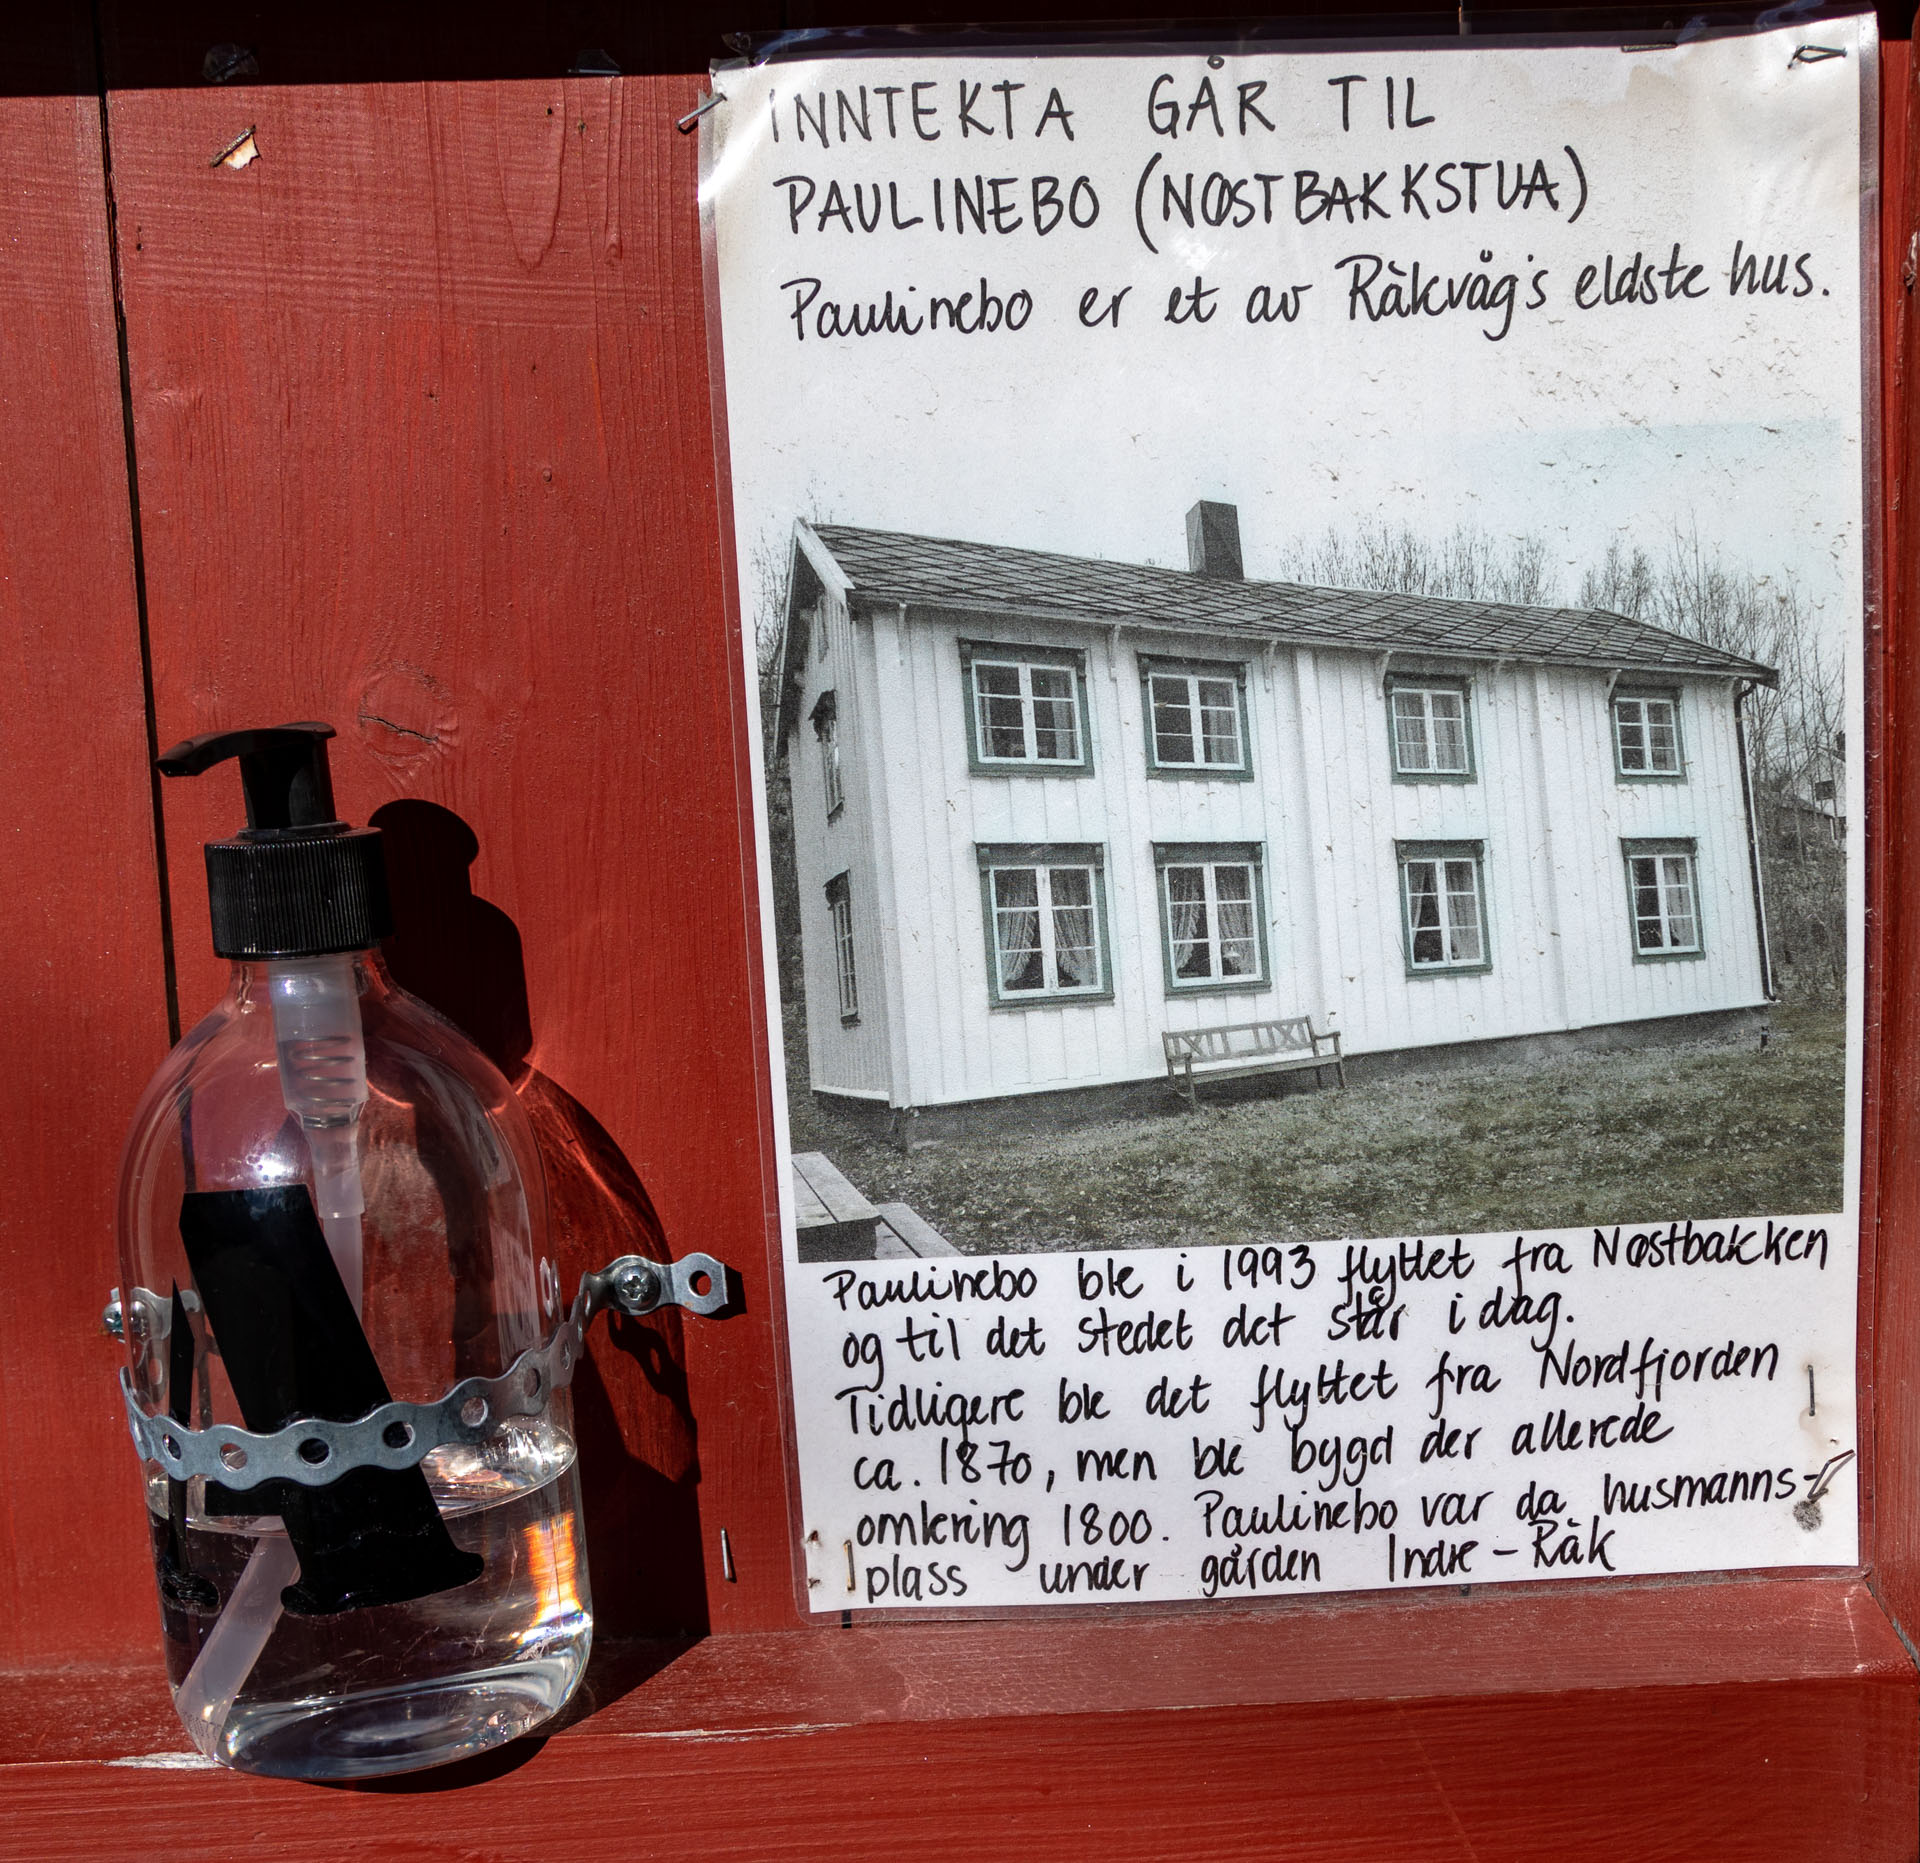 INNTEKTA GÅR TIL
PAULINEBO (NØSTBAKKSTUA)
Paulinebo er et av Råkvåg's eldste hus.
Paulinebo ble i 1993 flyttet fra Nøstbakken
og til det stedet det står i dag.
Tidligere ble det flyttet fra Nordfjorden
ca. 1870, men ble bygd der allerede
omkring 1800. Paulinebo var da husmanns-
plass under gården Indre-Råk